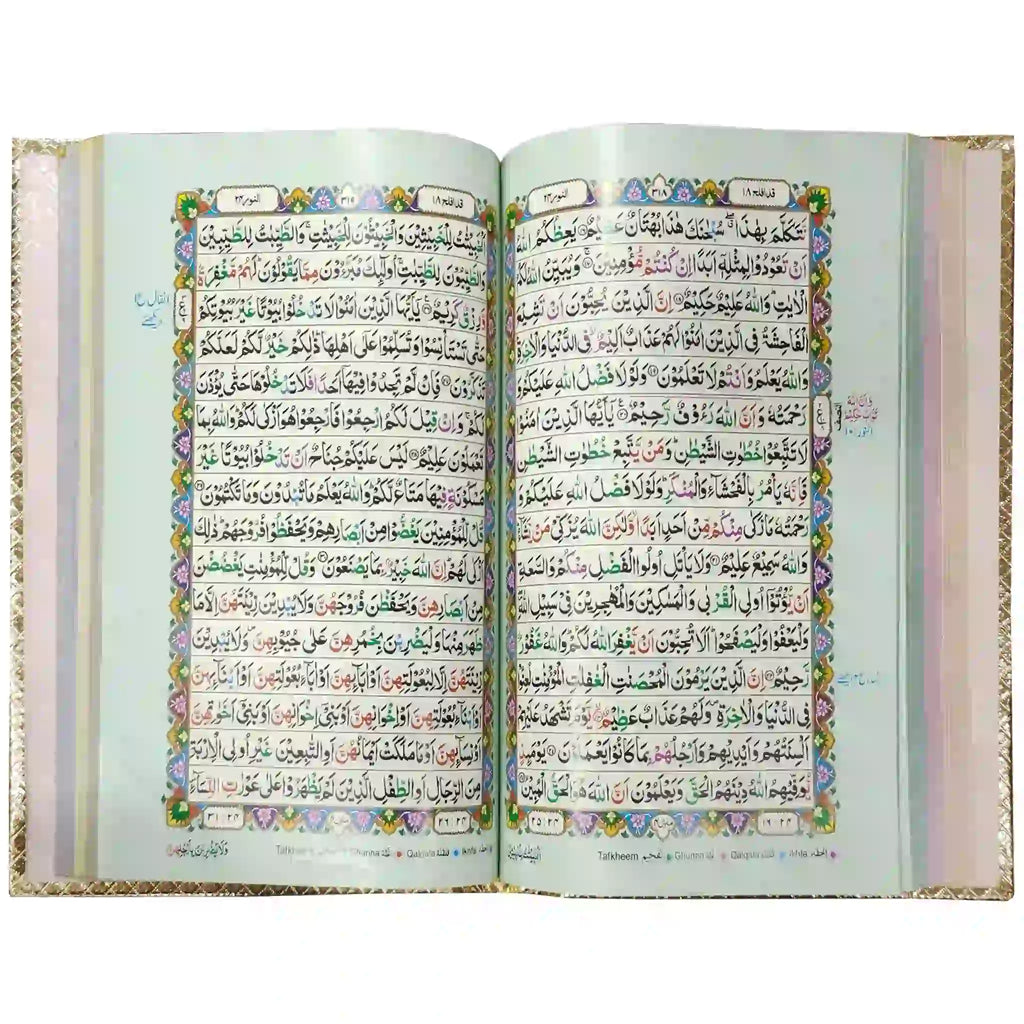 قد افلح ١٨ ٣١٨ النور ٢٤
نَّتَكَلَّمَ بِهٰذَا ۖ سُبْحٰنَكَ هٰذَا بُهْتَانٌ عَظِيْمٌ ۝١٦ يَعِظُكُمُ اللّٰهُ
اَنْ تَعُوْدُوْا لِمِثْلِهٖۤ اَبَدًا اِنْ كُنْتُمْ مُّؤْمِنِيْنَ ۝١٧ وَيُبَيِّنُ اللّٰهُ لَكُمُ
الْاٰيٰتِ ؕ وَاللّٰهُ عَلِيْمٌ حَكِيْمٌ ۝١٨ اِنَّ الَّذِيْنَ يُحِبُّوْنَ اَنْ تَشِيْعَ
الْفَاحِشَةُ فِى الَّذِيْنَ اٰمَنُوْا لَهُمْ عَذَابٌ اَلِيْمٌ ۙ فِى الدُّنْيَا وَالْاٰخِرَةِ ؕ
وَاللّٰهُ يَعْلَمُ وَاَنْتُمْ لَا تَعْلَمُوْنَ ۝١٩ وَلَوْلَا فَضْلُ اللّٰهِ عَلَيْكُمْ وَ
رَحْمَتُهٗ وَاَنَّ اللّٰهَ رَءُوْفٌ رَّحِيْمٌ ۝٢٠ يٰۤاَيُّهَا الَّذِيْنَ اٰمَنُوْا
لَا تَتَّبِعُوْا خُطُوٰتِ الشَّيْطٰنِ ؕ وَمَنْ يَّتَّبِعْ خُطُوٰتِ الشَّيْطٰنِ
فَاِنَّهٗ يَاْمُرُ بِالْفَحْشَآءِ وَالْمُنْكَرِ ؕ وَلَوْلَا فَضْلُ اللّٰهِ عَلَيْكُمْ وَ
رَحْمَتُهٗ مَا زَكٰى مِنْكُمْ مِّنْ اَحَدٍ اَبَدًا ۙ وَّلٰكِنَّ اللّٰهَ يُزَكِّىْ مَنْ يَّشَآءُ ؕ
وَاللّٰهُ سَمِيْعٌ عَلِيْمٌ ۝٢١ وَلَا يَاْتَلِ اُولُوا الْفَضْلِ مِنْكُمْ وَالسَّعَةِ
اَنْ يُّؤْتُوْۤا اُولِى الْقُرْبٰى وَالْمَسٰكِيْنَ وَالْمُهٰجِرِيْنَ فِىْ سَبِيْلِ اللّٰهِ ۖ
وَلْيَعْفُوْا وَلْيَصْفَحُوْا ؕ اَلَا تُحِبُّوْنَ اَنْ يَّغْفِرَ اللّٰهُ لَكُمْ ؕ وَاللّٰهُ غَفُوْرٌ
رَّحِيْمٌ ۝٢٢ اِنَّ الَّذِيْنَ يَرْمُوْنَ الْمُحْصَنٰتِ الْغٰفِلٰتِ الْمُؤْمِنٰتِ لُعِنُوْا
فِى الدُّنْيَا وَالْاٰخِرَةِ ۪ وَلَهُمْ عَذَابٌ عَظِيْمٌ ۝٢٣ يَّوْمَ تَشْهَدُ عَلَيْهِمْ
اَلْسِنَتُهُمْ وَاَيْدِيْهِمْ وَاَرْجُلُهُمْ بِمَا كَانُوْا يَعْمَلُوْنَ ۝٢٤ يَوْمَئِذٍ
يُّوَفِّيْهِمُ اللّٰهُ دِيْنَهُمُ الْحَقَّ وَيَعْلَمُوْنَ اَنَّ اللّٰهَ هُوَ الْحَقُّ الْمُبِيْنُ ۝٢٥
Tafkheem تفخيم Ghunna غنه Qalqala قلقلة Ikhfa إخفاء
قد افلح ١٨ ٣١٩ النور ٢٤
اَلْخَبِيْثٰتُ لِلْخَبِيْثِيْنَ وَالْخَبِيْثُوْنَ لِلْخَبِيْثٰتِ ۚ وَالطَّيِّبٰتُ لِلطَّيِّبِيْنَ
وَالطَّيِّبُوْنَ لِلطَّيِّبٰتِ ۚ اُولٰٓئِكَ مُبَرَّءُوْنَ مِمَّا يَقُوْلُوْنَ ؕ لَهُمْ مَّغْفِرَةٌ
وَّرِزْقٌ كَرِيْمٌ ۝٢٦ يٰۤاَيُّهَا الَّذِيْنَ اٰمَنُوْا لَا تَدْخُلُوْا بُيُوْتًا غَيْرَ بُيُوْتِكُمْ
حَتّٰى تَسْتَاْنِسُوْا وَتُسَلِّمُوْا عَلٰٓى اَهْلِهَا ؕ ذٰلِكُمْ خَيْرٌ لَّكُمْ لَعَلَّكُمْ
تَذَكَّرُوْنَ ۝٢٧ فَاِنْ لَّمْ تَجِدُوْا فِيْهَاۤ اَحَدًا فَلَا تَدْخُلُوْهَا حَتّٰى يُؤْذَنَ
لَكُمْ ۚ وَاِنْ قِيْلَ لَكُمُ ارْجِعُوْا فَارْجِعُوْا هُوَ اَزْكٰى لَكُمْ ؕ وَاللّٰهُ بِمَا
تَعْمَلُوْنَ عَلِيْمٌ ۝٢٨ لَيْسَ عَلَيْكُمْ جُنَاحٌ اَنْ تَدْخُلُوْا بُيُوْتًا غَيْرَ
مَسْكُوْنَةٍ فِيْهَا مَتَاعٌ لَّكُمْ ؕ وَاللّٰهُ يَعْلَمُ مَا تُبْدُوْنَ وَمَا تَكْتُمُوْنَ ۝٢٩
قُلْ لِّلْمُؤْمِنِيْنَ يَغُضُّوْا مِنْ اَبْصَارِهِمْ وَيَحْفَظُوْا فُرُوْجَهُمْ ؕ ذٰلِكَ
اَزْكٰى لَهُمْ ؕ اِنَّ اللّٰهَ خَبِيْرٌۢ بِمَا يَصْنَعُوْنَ ۝٣٠ وَقُلْ لِّلْمُؤْمِنٰتِ يَغْضُضْنَ
مِنْ اَبْصَارِهِنَّ وَيَحْفَظْنَ فُرُوْجَهُنَّ وَلَا يُبْدِيْنَ زِيْنَتَهُنَّ اِلَّا مَا
ظَهَرَ مِنْهَا وَلْيَضْرِبْنَ بِخُمُرِهِنَّ عَلٰى جُيُوْبِهِنَّ ۪ وَلَا يُبْدِيْنَ
زِيْنَتَهُنَّ اِلَّا لِبُعُوْلَتِهِنَّ اَوْ اٰبَآئِهِنَّ اَوْ اٰبَآءِ بُعُوْلَتِهِنَّ اَوْ اَبْنَآئِهِنَّ
اَوْ اَبْنَآءِ بُعُوْلَتِهِنَّ اَوْ اِخْوَانِهِنَّ اَوْ بَنِىْۤ اِخْوَانِهِنَّ اَوْ بَنِىْۤ اَخَوٰتِهِنَّ
اَوْ نِسَآئِهِنَّ اَوْ مَا مَلَكَتْ اَيْمَانُهُنَّ اَوِ التّٰبِعِيْنَ غَيْرِ اُولِى الْاِرْبَةِ
مِنَ الرِّجَالِ اَوِ الطِّفْلِ الَّذِيْنَ لَمْ يَظْهَرُوْا عَلٰى عَوْرٰتِ النِّسَآءِ ۪
Tafkheem Ghunna غنه Qalqala قلقلة Ikhfa إخفاء